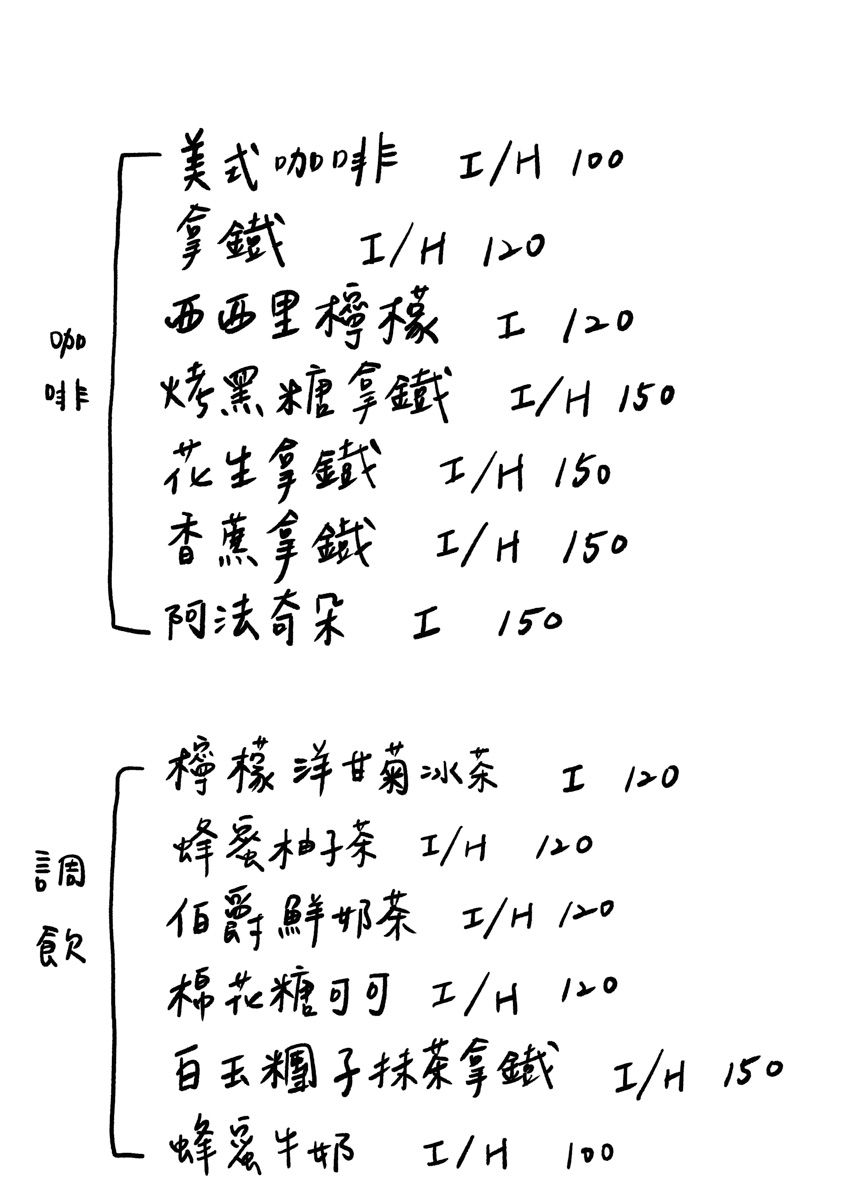 咖啡
美式咖啡 I/H 100
拿鐵 I/H 120
西西里檸檬 I 120
烤黑糖拿鐵 I/H 150
花生拿鐵 I/H 150
香蕉拿鐵 I/H 150
阿法奇朵 I 150
調飲
檸檬洋甘菊冰茶 I 120
蜂蜜柚子茶 I/H 120
伯爵鮮奶茶 I/H 120
棉花糖可可 I/H 120
白玉糰子抹茶拿鐵 I/H 150
蜂蜜牛奶 I/H 100